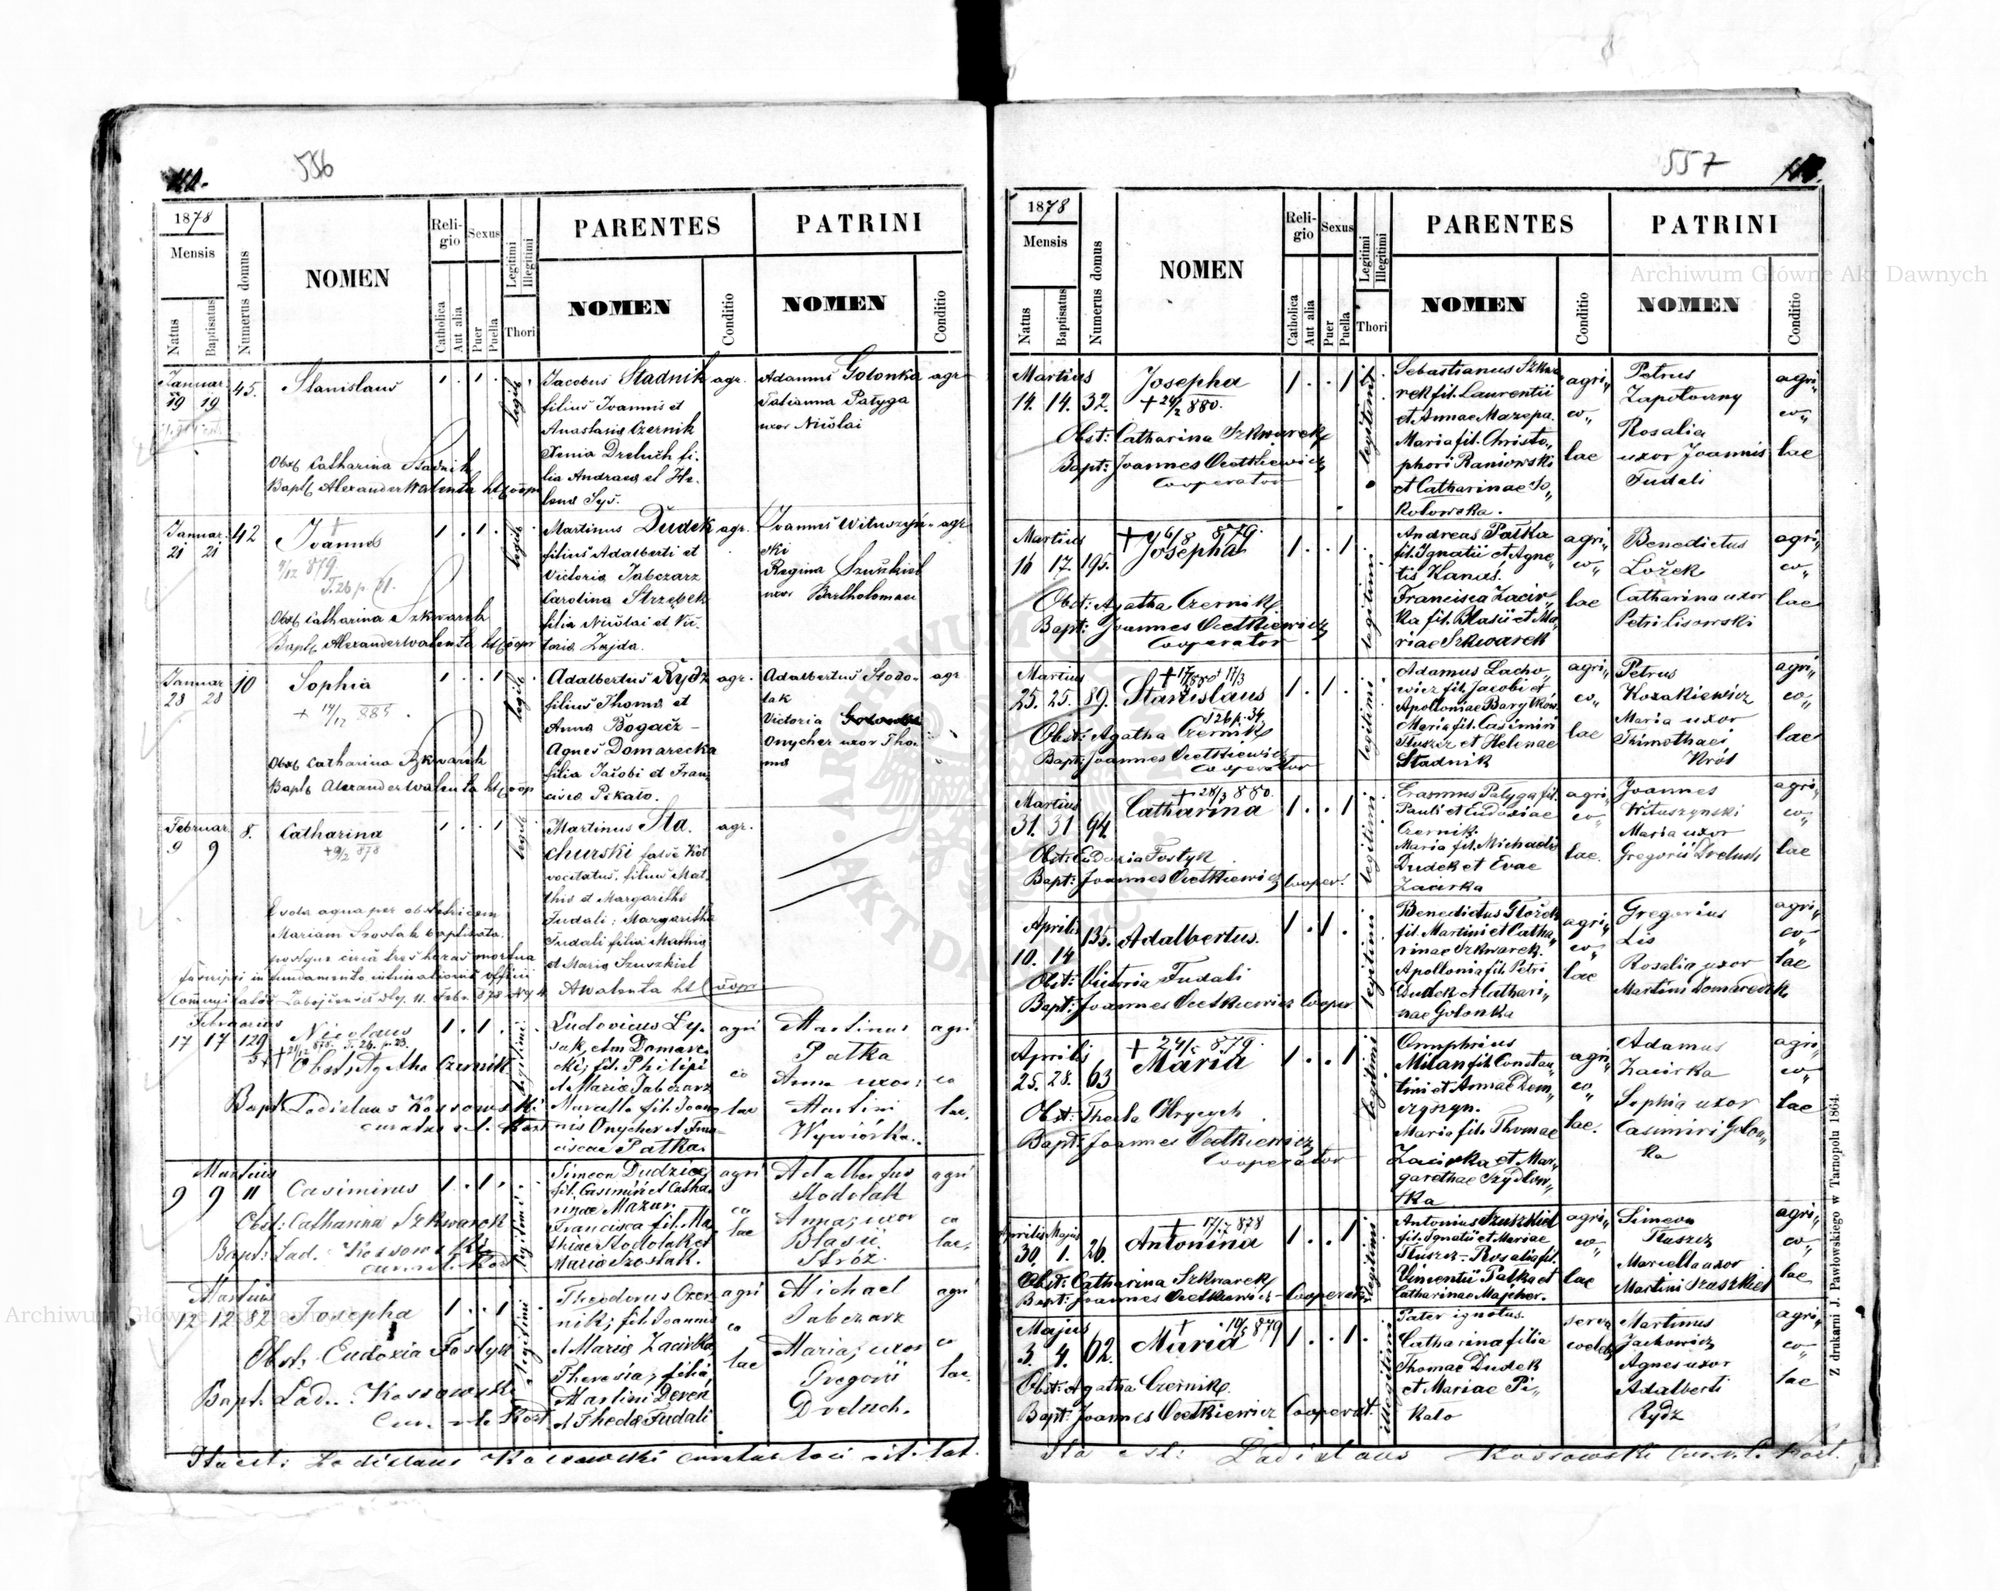 556
1878
Mensis
Natus
Baptisatus
Numerus domus
NOMEN
Religio
Catholica
Aut alia
Sexus
Puer
Puella
Legitimi
Illegitimi
Thori
PARENTES
NOMEN
Conditio
PATRINI
NOMEN
Conditio
Januar.
19 19
45.
Stanislaus
1 . 1 .
legit.
Obst Catharina Stadnik
Bapt Alexander Walenta
Jacobus Stadnik
filius Joannis et
Anastasia Czernik
Xenia Dreluch fi-
lia Andreas et He-
lena Sys.
agr.
Adamus Golonka
Tatianna Patyga
uxor Nicolai
agr
Januar.
21 21
42
Joannes
9/12 879
T. 26 p. 61.
1 . 1 .
legit.
Obst Catharina Szkwarek
Bapt Alexander Walenta
Martinus Dudek
filius Adalberti et
Victoria Tabczarz
Carolina Strzepek
filia Nicolai et Vic-
toria Zajda.
agr.
Joannes Wituszyń-
ski
Regina Szuszkiel
uxor Bartholomaei
agr
Januar
28 28
10
Sophia
+ 14/12 885.
1 . . 1
legit
Obst Catharina Szkwarek
Bapt Alexander Walenta
Adalbertus Rydz
filius Thoma et
Anna Bogacz -
Agnes Domarecka
filia Jacobi et Fran
cisca Pikato.
agr.
Adalbertus Stodo-
lak
Victoria
Onycher uxor Tho-
ma
agr
Februar
9 9
8.
Catharina
+ 9/2 878
1 . . 1
legit
Sola aqua per obstetricem
Mariam Szostak baptisata.
postque circa tres horas mortua
Martinus Sta-
churski false Kot
vocitatus, filius Mat-
thia et Margaritha
Fudali; Margaritha
Fudali filia Mathia
et Maria Szuszkiel
A Walenta
agr.
Februarius
17 17 120
Nicolaus
T. 26. p. 23.
1 . 1 .
legitimi
Obst. Agatha Czernik
Bapt. Ladislaus Kossowski
Ludovicus Ly-
sak, etm Domare-
cki; fil. Philipi
et Maria Tabczarz
Marcella fil. Joan-
nis Onycher et Fran-
ciscae Patka.
agri
co
lae
Martinus
Patka
Anna uxor
Martini
Wywiórka.
agri
co
lae.
Martius
9 9 11
Casimirus
1 . 1 .
legitimi
Obst: Catharina Szkwarek
Bapt: Lad. Kossowski
Simeon Dudzic,
fil. Casimiri et Catha-
rinae Mazur.
Francisca fil. Ma-
thiae Stodolak et
Maria Szostak.
agri
co
lae
Adalbertus
Stodolak
Anna, uxor
Blasii
Stróz.
agri
co
lae.
Martius
12 12 82
Josepha
1 . . 1
legitimi
Obst. Eudoxia Fostyk
Bapt. Lad. Kossowski
Theodorus Czer-
nik; fil. Joannis
et Maria Zacirka,
Theresia, filia
Martini Deren
et Theda Fudali.
agri
co
lae
Michael
Tabczarz
Maria, uxor
Gregorii
Dreluch.
agri
co
lae.
Ita est: Ladislaus Kossowski curatus loci rit. lat.
557
1878
Mensis
Natus
Baptisatus
Numerus domus
NOMEN
Religio
Catholica
Aut alia
Sexus
Puer
Puella
Legitimi
Illegitimi
Thori
PARENTES
NOMEN
Conditio
PATRINI
NOMEN
Conditio
Martius
14. 14. 32.
Josepha
+ 24/2 880.
1 . . 1
legitimi
Obst: Catharina Szkwarek
Bapt: Joannes Ocetkiewicz
Cooperator
Sebastianus Szkwa-
rek fil. Laurentii
et Annae Mazepa.
Maria fil. Christo-
phori Raniowski
et Catharinae So-
kolowska.
agri„
co„
lae
Petrus
Zapotoczny
Rosalia
uxor Joannis
Fudali
agri„
co„
lae
Martius
16 17. 195.
+ 6/8 879.
Josepha
1 . . 1
legitimi
Obst: Agatha Czernik
Bapt: Joannes Ocetkiewicz
Cooperator
Andreas Patka
fil. Ignatii et Agne-
tis Kanas.
Francisca Zacir-
ka fil. Blasii et Ma-
riae Szkwarek
agri„
co„
lae
Benedictus
Lożek
Catharina uxor
Petri Lisowski
agri„
co„
lae
Martius
25. 25. 89.
Stanislaus
T 26 p. 34
1 . 1 .
legitimi
Obst: Agatha Czernik
Bapt: Joannes Ocetkiewicz
Cooperator
Adamus Lacho-
wicz fil. Jacobi et
Apolloniae Barytkow.
Maria fil. Casimiri
Tłuszcz et Helenae
Stadnik
agri„
co„
lae
Petrus
Kozakiewicz
Maria uxor
Thimothaei
Król
agri„
co„
lae
Martius
31. 31 94.
+ 28/3 880.
Catharina
1 . . 1
legitimi
Obst: Eudoxia Fostyk
Bapt: Joannes Ocetkiewicz Cooper.
Erasmus Patyga fil.
Pauli et Eudoxiae
Czernik.
Maria fil. Michaelis
Dudek et Evae
Zacirka
agri„
co„
lae.
Joannes
Wituszynski
Maria uxor
Gregorii Dreluch
agri„
co„
lae
Aprilis
10. 14 135.
Adalbertus.
1 . 1 .
legitimi
Obst: Victoria Fudali
Bapt: Joannes Ocetkiewicz Cooper
Benedictus Głożek
fil. Martini et Catha-
rinae Szkwarek.
Apollonia fil. Petri
Dudek et Cathari-
nae Golonka
agri„
co„
lae
Gregorius
Lis
Rosalia uxor
Martini Domareck
agri„
co„
lae
Aprilis
25. 28. 63
+ 24/5 879.
Maria
1 . . 1
legitimi
Obst: Thecla Hrycych
Bapt: Joannes Ocetkiewicz
Cooperator
Onuphrius
Milan fil. Constan-
tini et Annae Dem-
czyszyn.
Maria fil. Thomae
Zacirka et Mar-
garethae Szydłow-
ska
agri„
co„
lae.
Adamus
Zacirka
Sophia uxor
Casimiri Golon-
ka
agri„
co„
lae
Aprilis Majus
30. 1. 26.
+ 17/7 878
Antonina
1 . . 1
legitimi
Obst: Catharina Szkwarek
Bapt: Joannes Ocetkiewicz Cooperator
Antonius Szuszkiel
fil. Ignatii et Mariae
Tłuszcz - Rosalia fil.
Vincentii Patka et
Catharinae Majcher.
agri„
co„
lae
Simeon
Tłuszcz
Marcella uxor
Martini Szuszkiel
agri„
co„
lae
Majus
3. 4. 62.
+ 10/5 879
Maria
1 . . 1 .
illegitimi
Obst: Agatha Czernik
Bapt: Joannes Ocetkiewicz Cooperat.
Pater ignotus.
Catharina filia
Thomae Dudek
et Mariae Pi-
kato
Martinus
Jachowicz
Agnes uxor
Adalberti
Rydz
agri„
co„
lae
Ita est: Ladislaus Kossowski
Z drukarni J. Pawłowskiego w Tarnopolu 1864.
Archiwum Główne Akt Dawnych
Archiwum Główne Akt Dawnych
ARCHIWUM GŁÓWNE AKT DAWNYCH